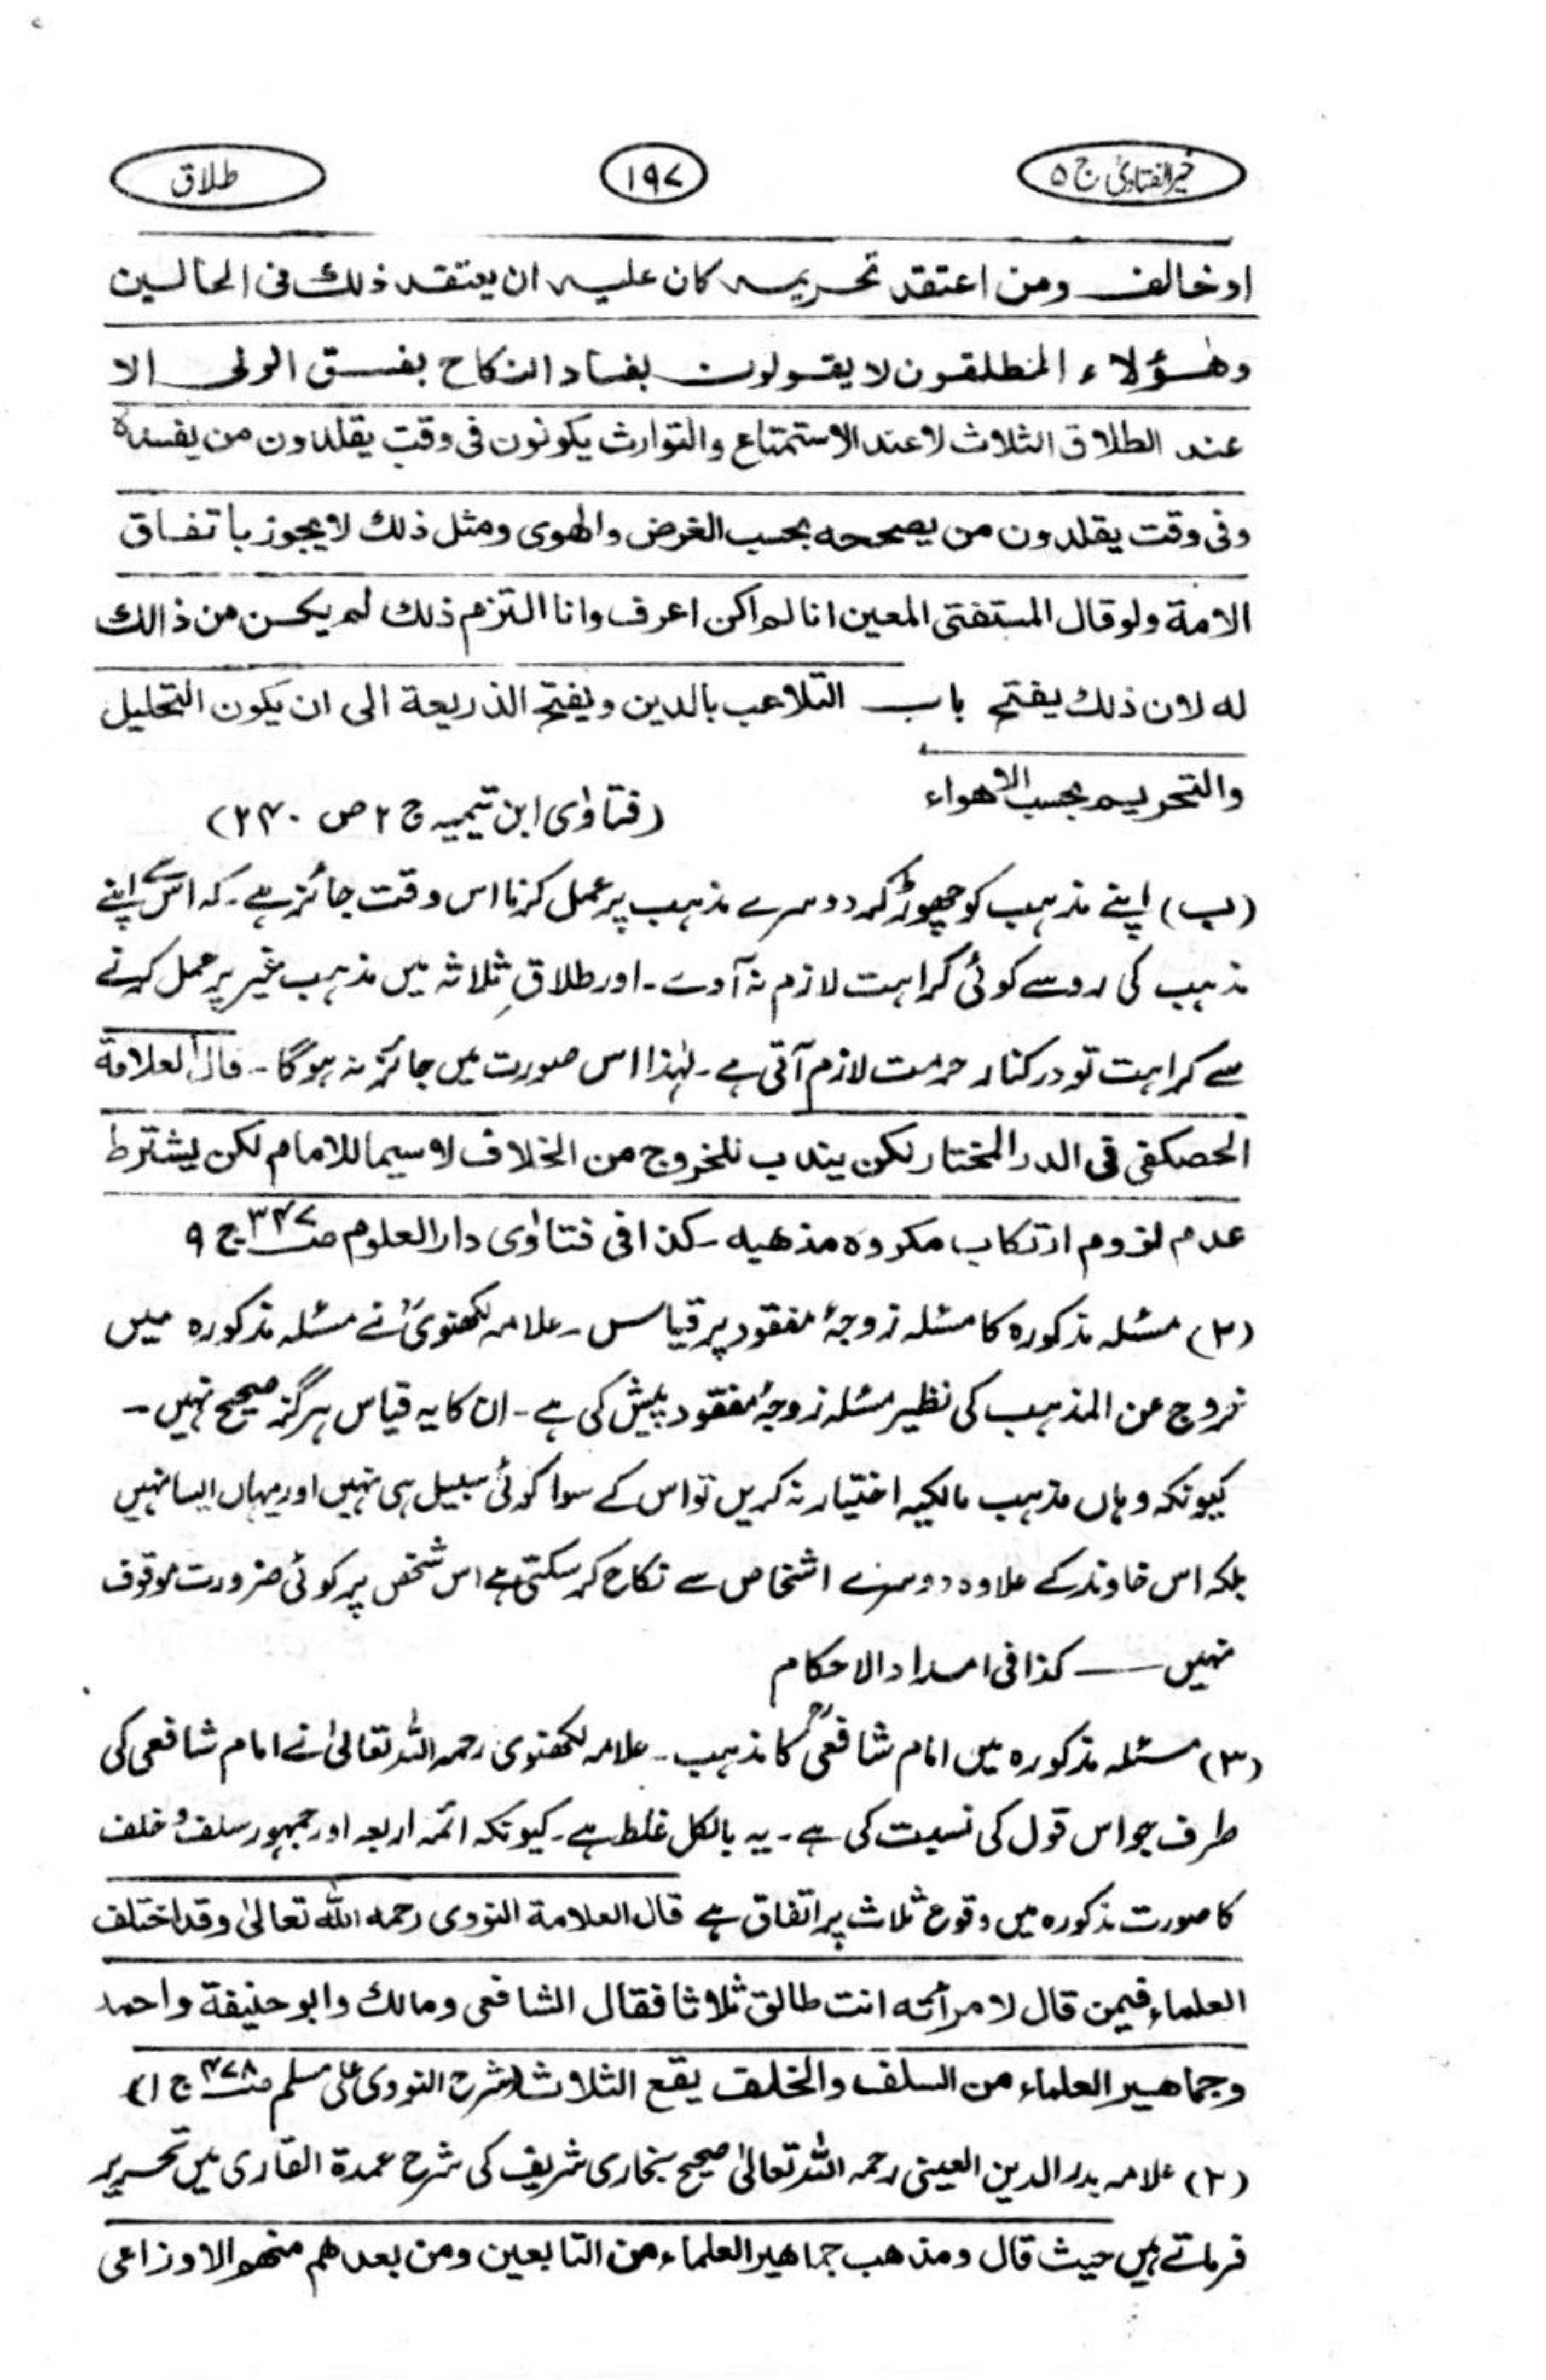 خیر الفتاویٰ ج ۵
۱۹۷
طلاق
او خالف ومن اعتقد تحریمہ کان علیہ ان یعتقد ذلك فی الحالین
وھؤلاء المطلقون لا یقولون بفساد النکاح بفسق الولی الا
عند الطلاق الثلاث لا عند الاستمتاع والتوارث یکونون فی وقت یقلدون من یفسدہ
وفی وقت یقلدون من یصححه بحسب الغرض والھوی ومثل ذلك لا یجوز باتفاق
الامة ولو قال المستفتی المعین انا لم اکن اعرف وانا التزم ذلك لم یکن من ذالك
له لان ذلك یفتح باب التلاعب بالدین ویفتح الذریعة الی ان یکون التحلیل
والتحریم بحسب الاھواء
(فتاوٰی ابن تیمیہ ج ۲ ص ۲۴۰)
(ب) اپنے مذہب کو چھوڑ کر دوسرے مذہب پر عمل کرنا اس وقت جائز ہے۔ کہ اس سے اپنے
مذہب کی رو سے کوئی کراہت لازم نہ آوے۔ اور طلاقِ ثلاثہ میں مذہب غیر پر عمل کرنے
سے کراہت تو درکنار حرمت لازم آتی ہے۔ لہٰذا اس صورت میں جائز نہ ہوگا۔ قال العلامة
الحصکفی فی الدر المختار لکن یندب للخروج من الخلاف لا سیما للامام لکن یشترط
عدم لزوم ارتکاب مکروہ مذھبه۔ کذا فی فتاوٰی دار العلوم صـ۳۴۷ ج ۹
(۲) مسئلہ مذکورہ کا مسئلہ زوجۂ مفقود پر قیاس۔ علامہ لکھنویؒ نے مسئلہ مذکورہ میں
خروج عن المذہب کی نظیر مسئلہ زوجۂ مفقود پیش کی ہے۔ ان کا یہ قیاس ہرگز صحیح نہیں۔
کیونکہ وہاں مذہب مالکیہ اختیار نہ کریں تو اس کے سوا کوئی سبیل ہی نہیں اور یہاں ایسا نہیں
بلکہ اس خاوند کے علاوہ دوسرے اشخاص سے نکاح کر سکتی ہے اس شخص پر کوئی ضرورت موقوف
نہیں ـــــ کذا فی امداد الاحکام
(۳) مسئلہ مذکورہ میں امام شافعیؒ کا مذہب۔ علامہ لکھنوی رحمہ اللہ تعالیٰ نے امام شافعی کی
طرف جو اس قول کی نسبت کی ہے۔ یہ بالکل غلط ہے۔ کیونکہ ائمہ اربعہ اور جمہور سلف و خلف
کا صورت مذکورہ میں وقوع ثلاث پر اتفاق ہے قال العلامة النووی رحمه الله تعالیٰ وقد اختلف
العلماء فیمن قال لامرأته انت طالق ثلاثا فقال الشافعی ومالك وابو حنیفة واحمد
وجماھیر العلماء من السلف والخلف یقع الثلاث (شرح النووی علی مسلم صـ۴۷۸ ج ۱)
(۲) علامہ بدر الدین العینی رحمہ اللہ تعالیٰ صحیح بخاری شریف کی شرح عمدة القاری میں تحریر
فرماتے ہیں حیث قال ومذھب جماھیر العلماء من التابعین ومن بعدھم منھم الاوزاعی